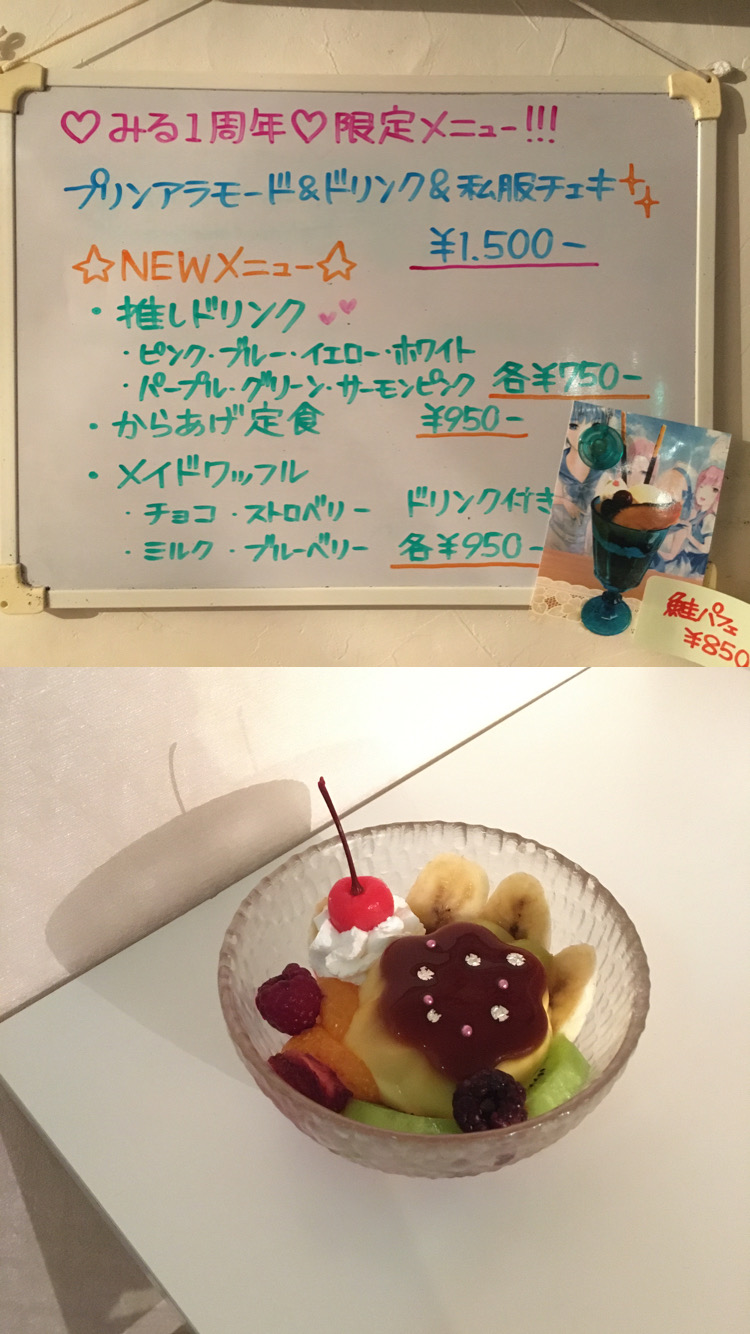 ♡みる1周年♡限定メニュー!!!
プリンアラモード&ドリンク&私服チェキ
¥1.500-
☆NEWメニュー☆
・推しドリンク
・ピンク・ブルー・イエロー・ホワイト
・パープル・グリーン・サーモンピンク 各¥750-
・からあげ定食 ¥950-
・メイドワッフル
・チョコ ・ストロベリー ドリンク付き
・ミルク ・ブルーベリー 各¥950-
鮭パフェ
¥850